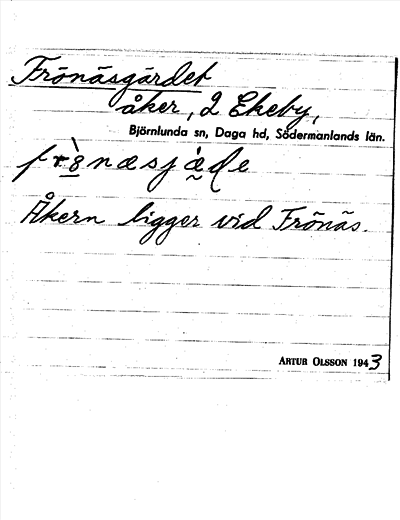 Frönäsgärdet
åker, 2 Ekeby,
Björnlunda sn, Daga hd, Södermanlands län.
Åkern ligger vid Frönäs.
ARTUR OLSSON 1943